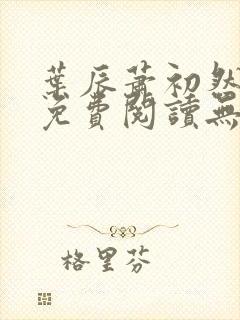 葉辰蕭初然
免費閱讀無
格里芬